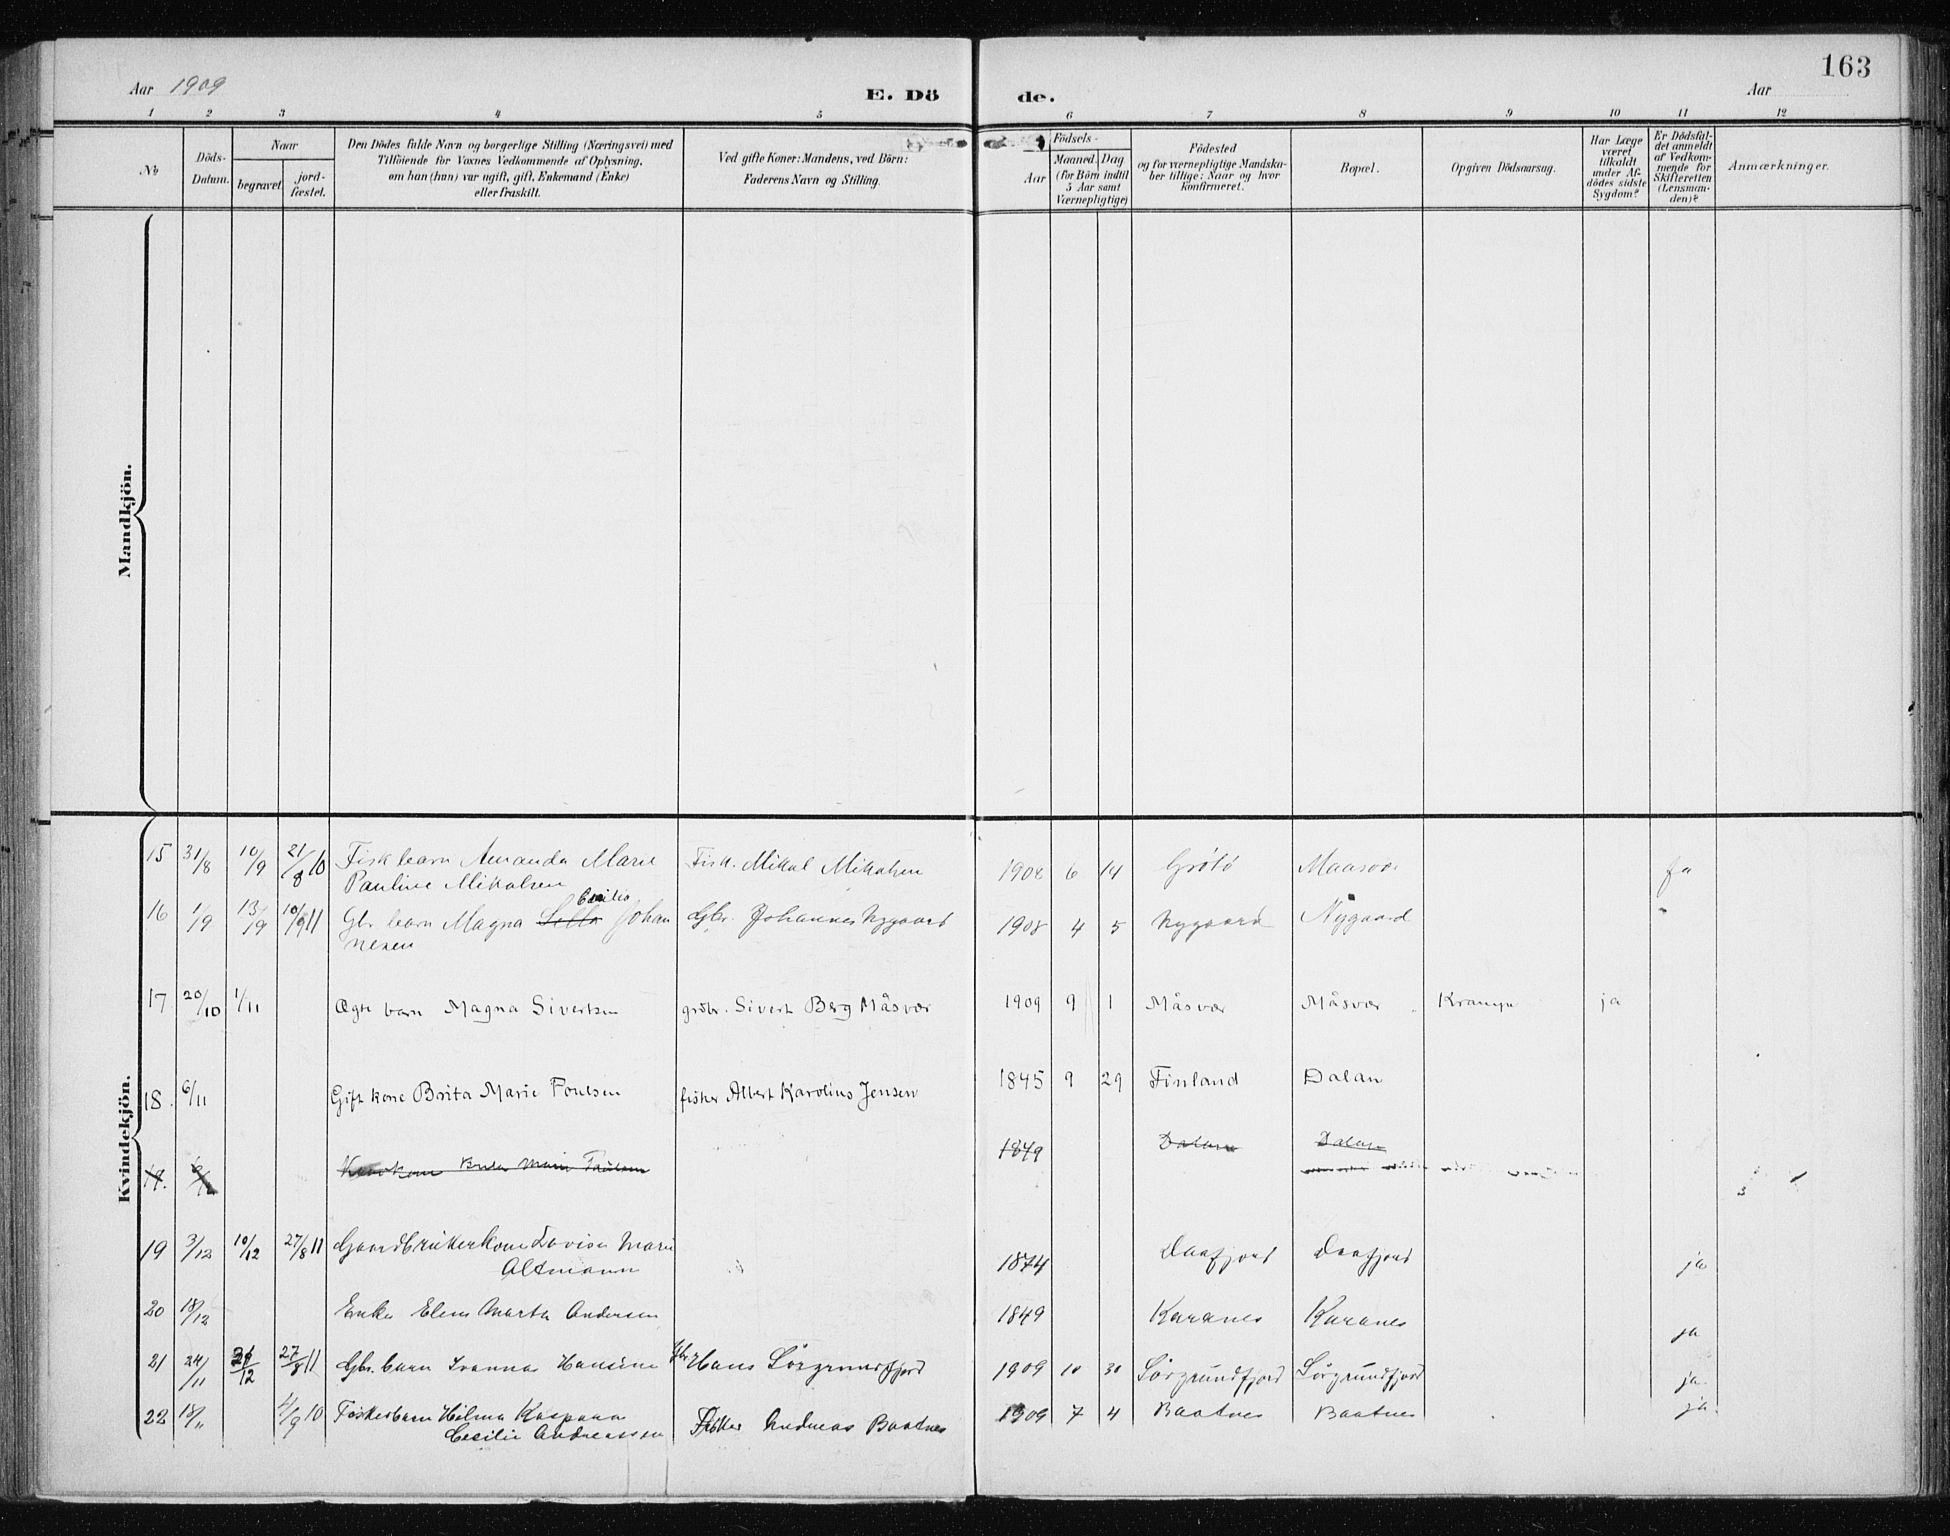 163
Aar 1909
E. Dö de.
Aar
1 2 3 4 5 6 7 8 9 10 11 12
No
Döds-
Datum.
Naar
begravet
jord-
fæstet.
Den Dödes fulde Navn og borgerlige Stilling (Næringsvei) med
Tilföiende for Voxnes Vedkommende af Oplysning,
om han (hun) var ugift, gift, Enkemand (Enke)
eller fraskilt.
Ved gifte Koner: Mandens, ved Börn:
Faderens Navn og Stilling.
Födsels-
Aar
Maaned Dag
(for Börn indtil
5 Aar samt
Værnepligtige)
Födested
og for værnepligtige Mandska-
ber tillige: Naar og hvor
konfirmeret.
Bopæl.
Opgiven Dödsaarsag.
Har Læge
været
tilkaldt
under Af-
dödes sidste
Sygdom?
Er Dödsfal-
det anmeldt
af Vedkom-
mende for
Skifteretten
(Lensman-
den)?
Anmærkninger.
Mandkjön.
Kvindekjön.
15 31/8 10/9 21/8 10 Fisk barn Amanda Marie Fisk. Mikal Mikalsen 1908 6 14 Grötö Maasvær ja
Pauline Mikalsen
Cecilie
16 1/9 13/9 10/9 11 Gbr barn Magna Johan Gbr. Johannes Nygaard 1908 4 5 Nygaard Nygaard
nesen
17 20/10 1/11 Ægte barn Magna Sivertsen grdbr. Sivert Berg Måsvær 1909 9 1 Måsvær Måsvær Krampe ja
18. 6/11 Gift kone Brita Marie Poulsen fisker Albert Karolius Jensen 1845 9 29 Finland Dalan
19. Brita Marie Paulsen 1849 Dalan Dalan
19 3/12 10/12 27/8 11 Gaardbrukerkone Lovise Marie 1874 Daafjord Daafjord ja
Altmann
20 18/12 Enke Elen Marth Andersen 1849 Karanes Karanes ja
21 24/11 /12 27/8 11 Gbr. barn Ivanna Hansine Gbr. Hans Sörgrundfjord 1909 10 30 Sörgrundfjord Sörgrundfjord ja
22 18/11 4/9 10 Fiskerbarn Hilma Kaspara Fisker Andreas Baatnes 1909 7 4 Baatnes Baatnes ja
Cecilie Andreassen